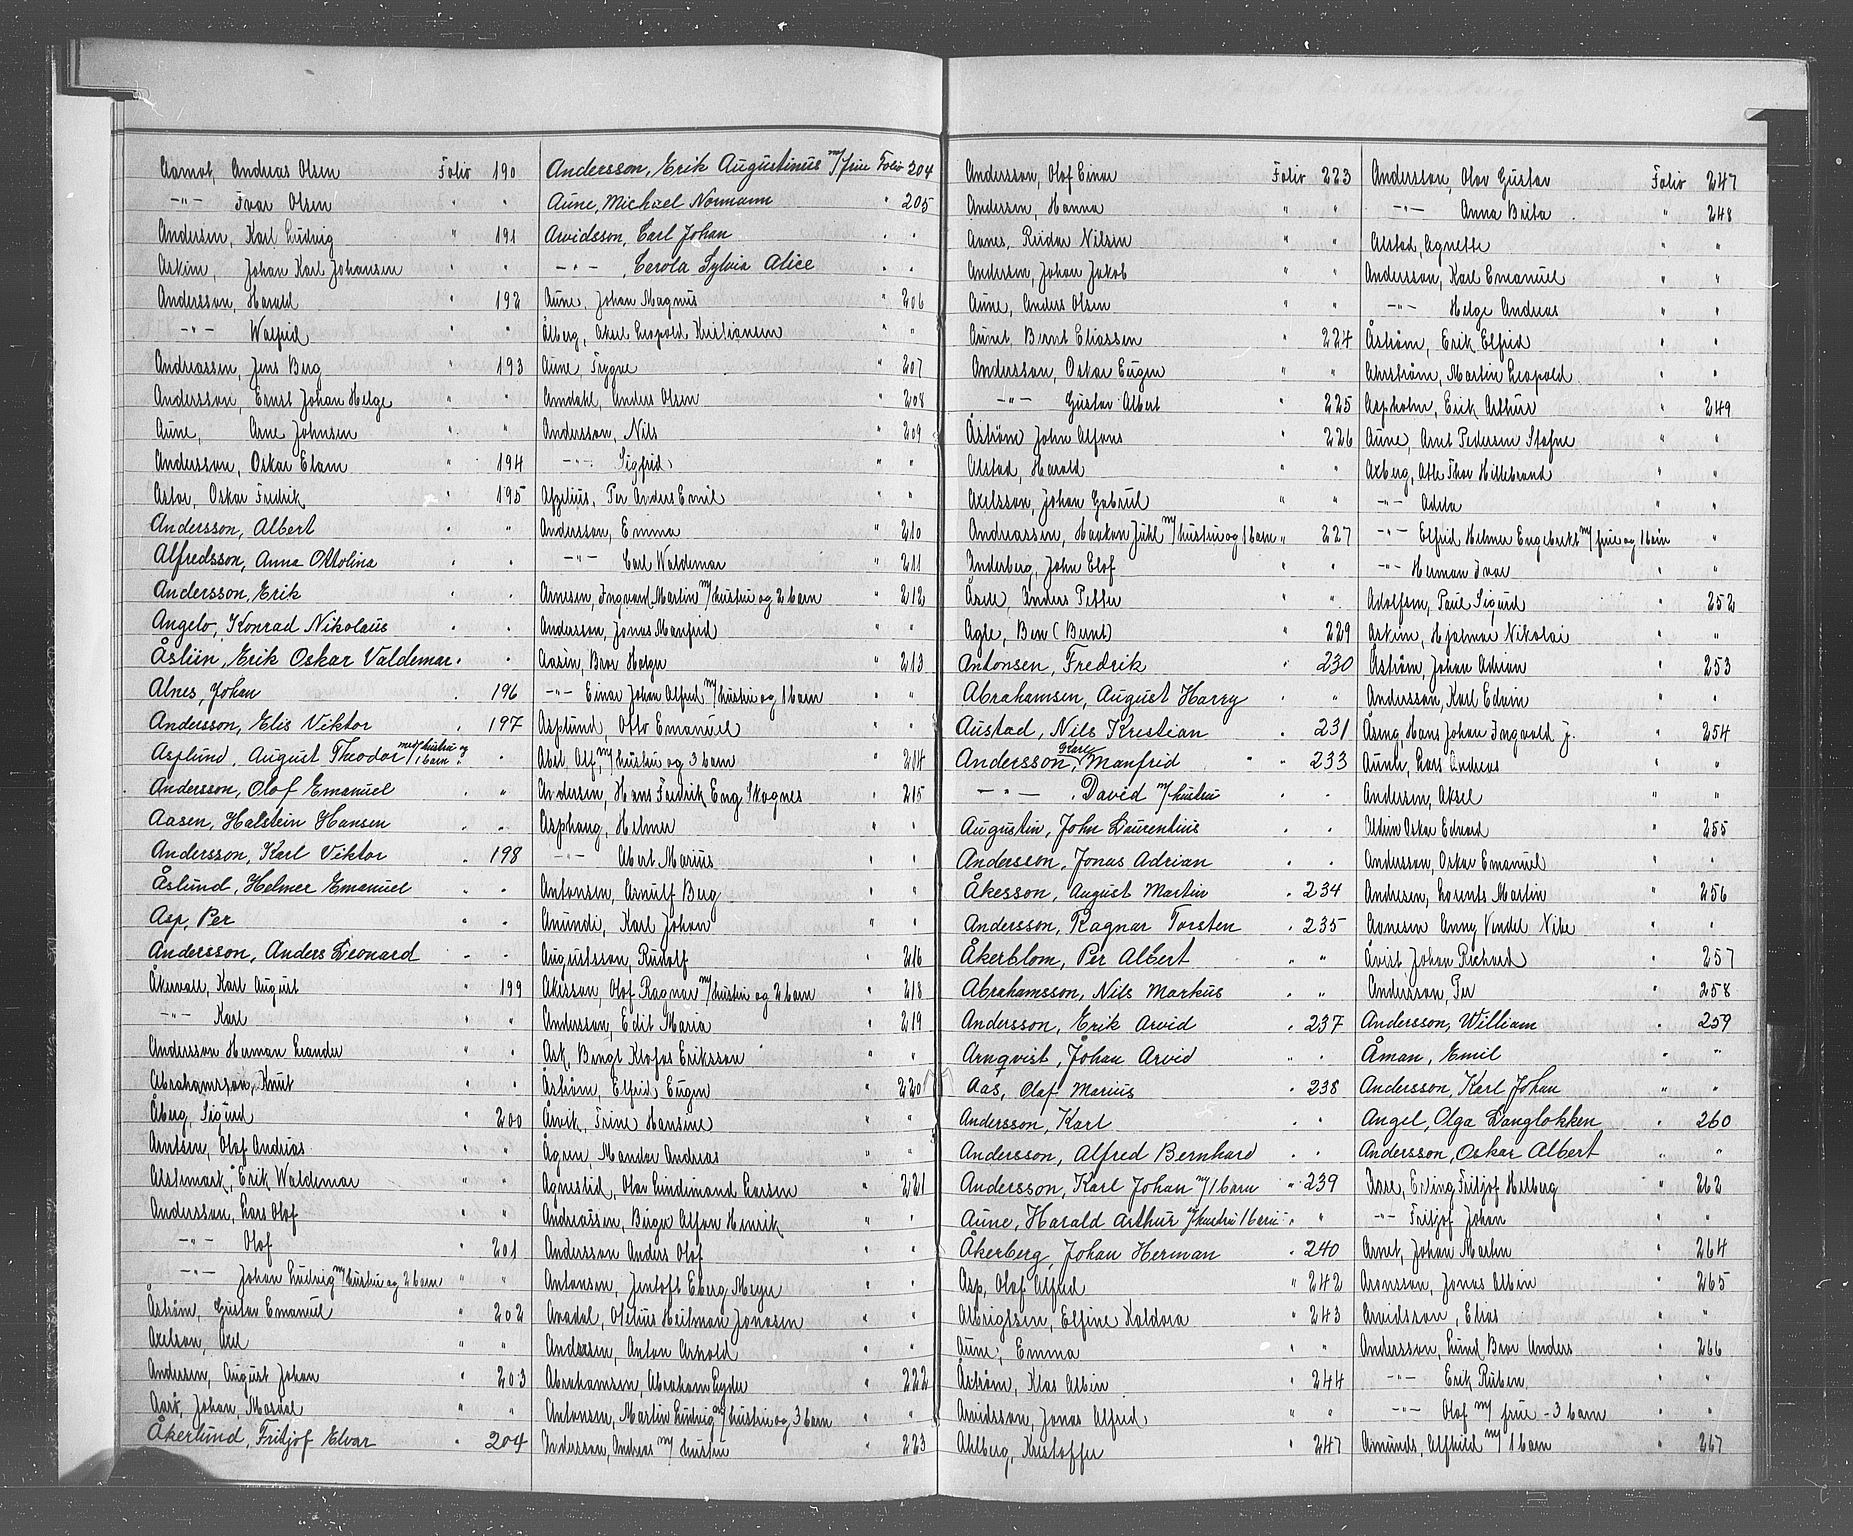 Aamot, Andreas Olsen Folio 190
-"- Ivar Olsen " "
Andersen, Karl Ludvig " 191
Askim, Johan Karl Johansen " "
Andersson, Harald " 192
-"- Walfrid " "
Andreassen, Jens Berg " 193
Andersson, Ernst Johan Helge " "
Aune, Arne Johnsen " "
Andersson, Oskar Elam " 194
Astor, Oskar Fredrik " 195
Andersson, Albert " "
Alfredsson, Anna Ottolina " "
Andersson, Erik " "
Angelo, Konrad Nikolaus " "
Åsliin, Erik Oskar Valdemar " "
Alnes, Johan " 196
Andersson, Elis Viktor " 197
Asplund, August Theodor med hustru og 1 barn " "
Andersson, Olof Emanuel " "
Aasen, Halstein Hansen " "
Andersson, Karl Viktor " 198
Åslund, Helmer Emanuel " "
Asp, Per " "
Andersson, Anders Leonard " "
Åkervall, Karl August " 199
-"- Karl " "
Andersson Herman Leander " "
Abrahamsson, Knut " "
Åberg, Sigurd " 200
Arntsen, Olof Andreas " "
Alstermark, Erik Waldemar " "
Andersson, Lars Olof " "
-"- Olof " 201
-"- Johan Ludvig m/hustru og 2 barn " "
Åström, Gustav Emanuel " 202
Axelson, Axel " "
Andersen, August Johan " 203
Aarö, Johan, Masdal " "
Åkerlund, Fritjof Elvar " 204
Andersson, Erik Augustinus m/frue Folio 204
Aune, Michael Normann " 205
Arvidsson, Carl Johan " "
-"- , Cerola Sylvia Alice " "
Aune, Johan Magnus " 206
Ålberg, Aksel Leopold Kristiansen " "
Aune, Trygve " 207
Amdahl, Anders Olsen " 208
Andersson, Nils " 209
-"- Sigfrid " "
Afzelius, Per Anders Emil " "
Andersson, Emma " 210
-"- Carl Waldemar " 211
Arnesen, Ingvard Martin m/hustru og 2 barn " 212
Andersson, Jonas Manfrid " "
Aasin, Bror Holger " 213
-"- Einar Johan Alfred m/hustru og 1 barn " "
Asplund, Otto Emanuel " "
Abel Alf, m/hustru og 3 barn " 204
Andersen, Hans Fredrik Eng Skognes " 215
Asphaug, Helmer " "
-"- Abert Marius " "
Antonsen, Arnulf Berg " "
Amundi, Karl Johan " "
Augustsson, Rudolf " 216
Åkesson, Olof Ragnar m/hustru og 2 barn " 218
Andersson, Edit Maria " 219
Ask, Bengt Klofas Eriksson " "
Åström, Elfrid Eugen " 220
Årvik, Trine Hansine " "
Ågren, Mandor Andreas " "
Agnestid, Olav Lindemand Larsen " 221
Andreassen, Birger Alfon Henrik " "
Andersson Anders Olof " "
Antonsen, Jentoft Eberg Meyer " "
Avadal, Oletius Heitman Jonasen " "
Andersen, Anton Arnold " "
Abrahamsen, Abraham Ryder " 222
Antonsen, Martin Ludvig m/hustru og 3 barn " "
Andersson, Andreas m/hustru " 223
Andersson, Olof Einar Folio 223
Andersen, Hanna " "
Aanes, Reidar Nilsen " "
Andersen, Johan Jakob " "
Aune, Anders Olsen " "
Aunet, Bernt Eliassen " 224
Andersson, Oskar Eugen " "
-"- Gustav Albert " 225
Åström, John Alfons " 226
Alstad, Harald " "
Axelsson, Johan Gabriel " "
Andreassen, Haakon Juhl m/hustru og 1 barn " 227
Anderberg, John Elof " "
Åsele, Anders Petter " "
Agle, Ben (Bernt) " 229
Antonsen, Fredrik " 230
Abrahamsen, August Harry " "
Austad, Nils Kristian " 231
Andersson, Karl Manfrid " " 233
-"- , David m/hustru " "
Augustin, John Laurentius " "
Andersson, Jonas Adrian " "
Åkesson, August Martin " 234
Andersson, Ragnar Torsten " 235
Åkerblom, Per Albert " "
Abrahamsson, Nils Markus " "
Andersson, Erik Arvid " 237
Arnqvist, Johan Arvid " "
Aas, Olaf Marius " 238
Andersson, Karl " "
Andersson, Alfred Bernhard " "
Andersson, Karl Johan m/1 barn " 239
Aune, Harald Arthur m/hustru 1 barn " "
Åkerberg, Johan Herman " 240
Asp, Olof Alfred " 242
Albrigtsen, Elfine Kaldora " 243
Aune, Emma " "
Åström, Klas Albin " 244
Arvidsson, Jonas Alfred " "
Ahlberg, Kristoffer " 247
Andersson, Olov Gustav Folio 247
-"- Anna Brita " 248
Alstad, Agnethe " "
Andersson, Karl Emanuel " "
-"- Helge Andreas " "
Åström, Erik Elfrid " "
Ahrström, Martin Leopold " "
Aspholm, Erik Arthur " 249
Aune, Arnt Pedersen Stafne " "
Axberg, Atle Thor Hillebrand " "
-"- Adela " "
-"- Elfrid Helmer Engebrekt m/frue og 1 barn "
-"- Herman Ivar " "
Adolfsen, Paul Sigurd " 252
Askim, Hjalmar Nikolai " "
Åström, Johan Adrian " 253
Andersson, Karl Edvin " "
Åsing, Hans Johan Ingvald j. " 254
Aunli, Lars Andreas " "
Andersen, Aksel " "
Aldin Oskar Edvard " 255
Andersson, Oskar Emanuel " "
Andersen, Lorents Martin " 256
Aanesen Anny Vendel Nibe " "
Åvist Johan Richard " 257
Andersson, Per " 258
Andersson, William " 259
Åman, Emil " "
Andersson, Karl Johan " "
Angel, Olga Langlokken " 260
Andersson, Oskar Albert " "
Aase, Erling Fritjof Helberg " 262
-"- Fritjof Johan " "
Arnet, Johan Martin " 264
Aronsson, Jonas Albin " 265
Arvidsson, Elias " "
Andersson, Lund Bror Anders " 266
-"- Erik Ruben " "
-"- Olof m/frue - 3 barn " "
Amunds, Alfhild m/1 barn " 267